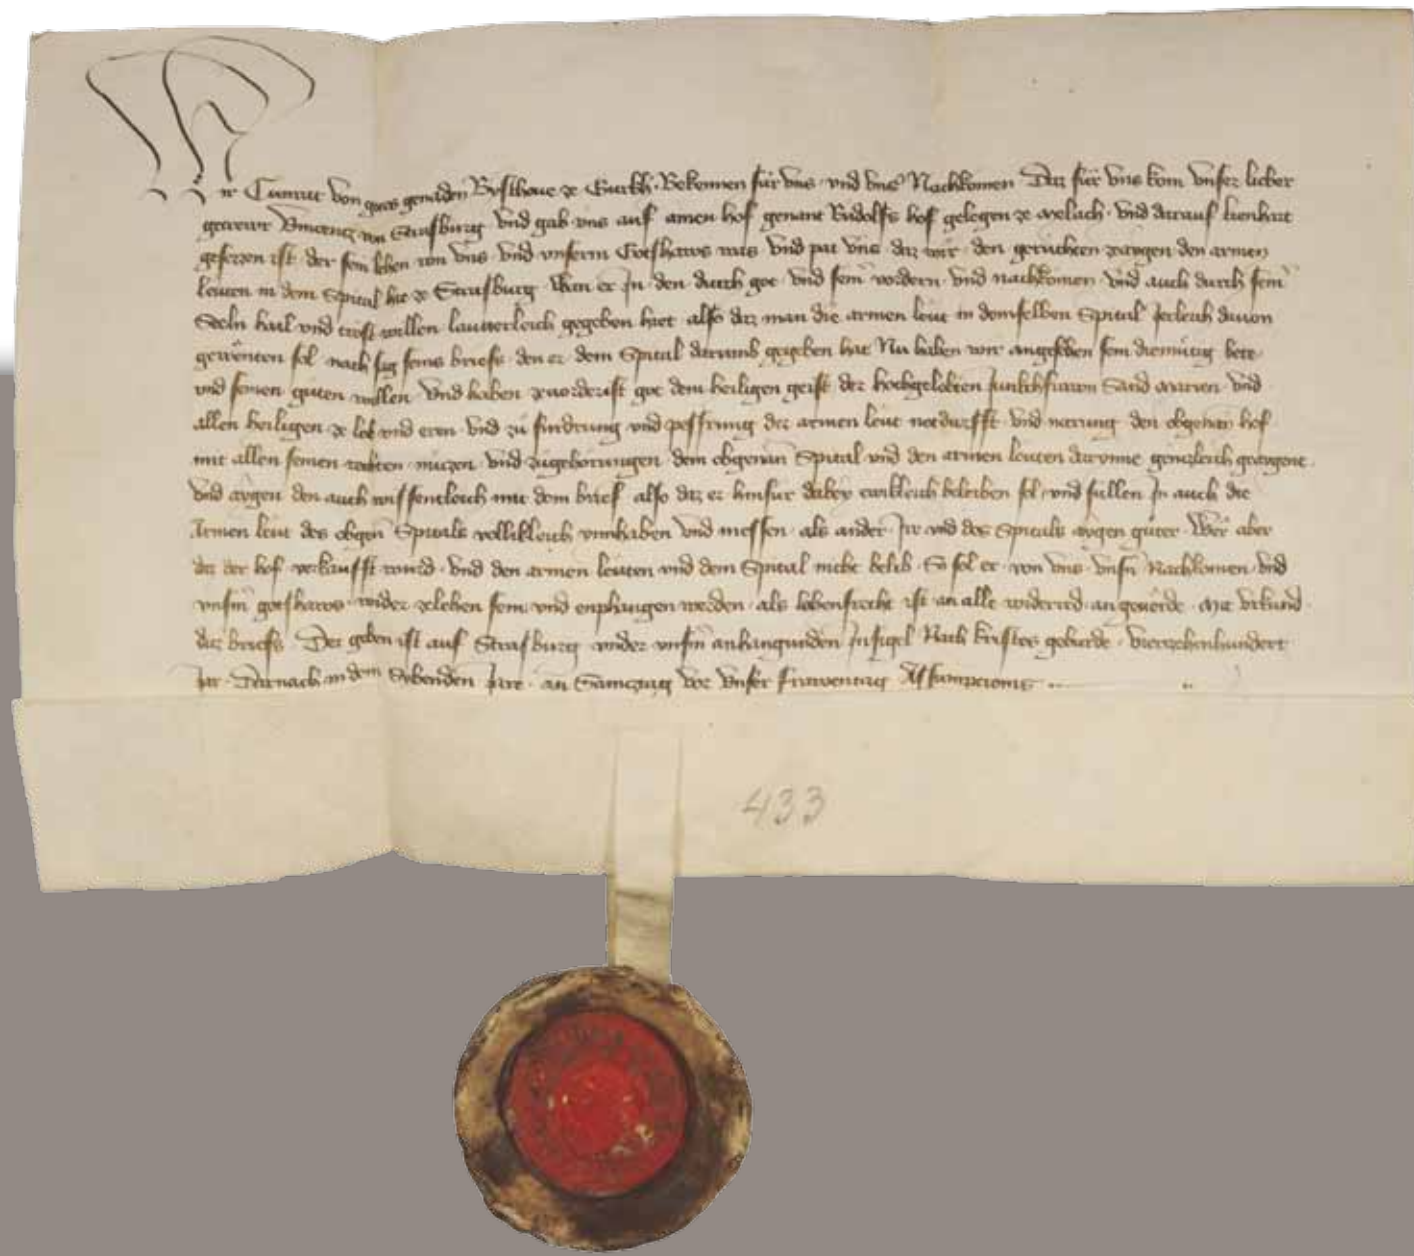 Wir Cunrat von gots genaden Bysschoue ze Gurkh. Bekennen für vns vnd vns Nachkomen Daz für vns kom vnser lieber
getrewr Vincencz von Strasburg vnd gab vns auf ainen hof genant Rudolfs hof gelegen ze Melach vnd darauf lienhart
gesezzen ist der sein lehen von vns vnd vnserm Gotshaws was vnd pat vns daz wir den geruchten zeaygen den armen
leuten in dem Spital hie ze Strasburg Wan er Jn den durch got vnd sein vodern vnd nachkomen vnd auch durch sein
Seln hail vnd trost willen lautterleich gegeben hiet also daz man die armen leut in demselben Spital Jerleich dauon
 sol nach sag seins briefs den er dem Spital darumb gegeben hat Nu haben wir angesehen sein diemütig bete
vnd seinen guten willen vnd haben zuordrist got dem heiligen geist der hochgelobten Junkchfrawn Sand Marien vnd
allen heiligen ze lob vnd eren vnd zu fürdrung vnd pessrung der armen leut notdurfft vnd narung den obgenan hof
mit allen seinen rechten nuczen vnd zugehorungen dem obgenan Spital vnd den armen leuten darynne genczleich geaygent
vnd aygen den auch wissentleich mit dem brief also daz er hinfur dabey ewikleich beleiben sol vnd sullen Jn auch die
Armen leut des obgen Spitals vollikleich innhaben vnd niessen als ander Jre vnd des Spitals aygen guter Wer aber
daz der hof verkaufft wurd vnd den armen leuten vnd dem Spital nicht belib So sol er von vns vnsn Nachkomen vnd
vnsm gotshaws wider zelehen sein vnd enphangen werden als lehensrecht ist an alle widerred an geuerde Mit vrkund
diz briefs Der geben ist auf Strasburg vnder vnsm anhangunden Jnsigel Nach kristes geburde vierczehenhundert
Jar Darnach in dem Sybenden Jare an Samcztag vor vnser frawentag Assumpcionis
433